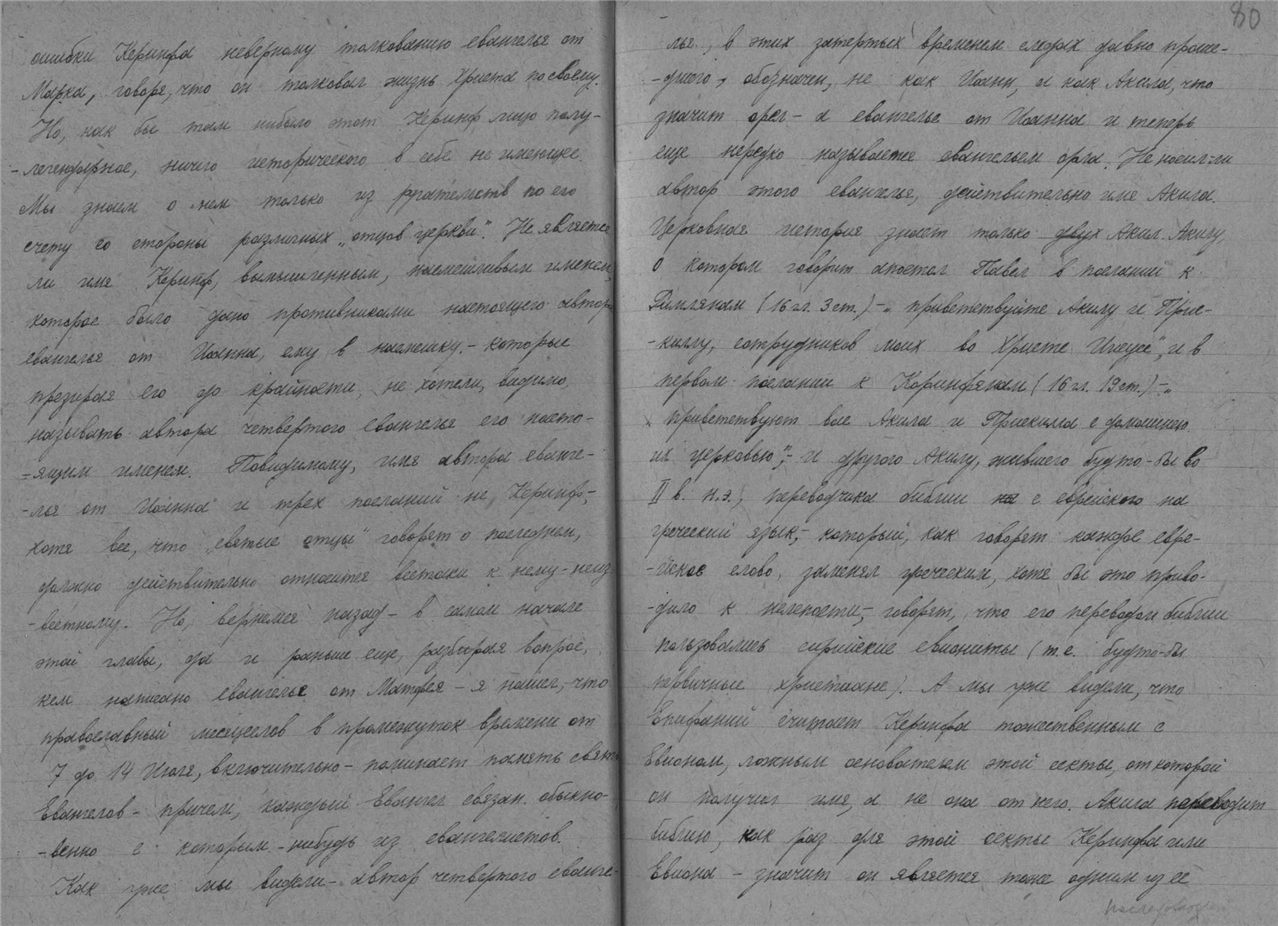 ошибки Керинфа неверному толкованию евангелья от
Марка, говоря, что он толковал жизнь Христа по своему.
Но, как бы там нибыло этот Керинф лицо полу-
-легендарное, ничего исторического в себе не имеющее.
Мы знаем о нем только из ругательств по его
счету со стороны различных „отцов церкви". Не является
ли имя Керинф, вымышленным, насмешливым именем,
которое было дано противниками настоящего автора
евангелья от Иоанна, ему в насмешку.- которые
презирая его до крайности, не хотели, видимо,
называть автора четвертого евангелья его насто-
-ящим именем. Повидимому, имя автора еванге-
-лья от Иоанна и трех посланий не, Керинф,-
хотя все, что „святые отцы" говорят о последнем,
должно действительно относится всетаки к нему-неиз-
-вестному. Но, вернемся назад - в самом начале
этой главы, да и раньше еще, разбирая вопрос,
кем написано евангелье от Матфея - я нашел, что
православный месяцеслов в промежуток времени от
7 до 14 Июля, включительно - поминает память святых
Евангелов - причем, каждый Евангел связан обыкно-
-венно с которым-нибудь из евангелистов.
Как уже мы видели - автор четвертого еванге-
80
лья, в этих затертых временем следах давно проше-
-дшего, обозначен, не как Иоанн, а как Акила, что
значит орел - а евангелье от Иоанна и теперь
еще нередко называется евангельем орла. Не носил-ли
автор этого евангелия, действительно имя Акила.
Церковная история знает только двух Акил. Акилу,
о котором говорит апостол Павел в послании к
Римлянам (16 гл. 3 ст.) - „приветствуйте Акилу и Прис-
-киллу, сотрудников моих во Христе Иисусе", и в
первом послании к Коринфянам (16 гл. 19 ст.) - „
приветствуют вас Акила и Прискилла с домашнею
их церковью",- и другого Акилу, жившего будто-бы во
II в. н.э., переводчика библии с еврейского на
греческий язык,- который, как говорят каждое евре-
-йское слово, заменял греческим, хотя бы это приво-
-дило к нелепости,- говорят, что его переводом библии
пользовались сирийские евиониты (т.е. будто-бы
первичные христиане). А мы уже видели, что
Епифаний считает Керинфа тожественным с
Евионом, ложным основателем этой секты, от которой
он получил имя, а не она от него. Акила переводит
библию, как раз для этой секты Керинфа или
Евиона - значит он является тоже одним из ее